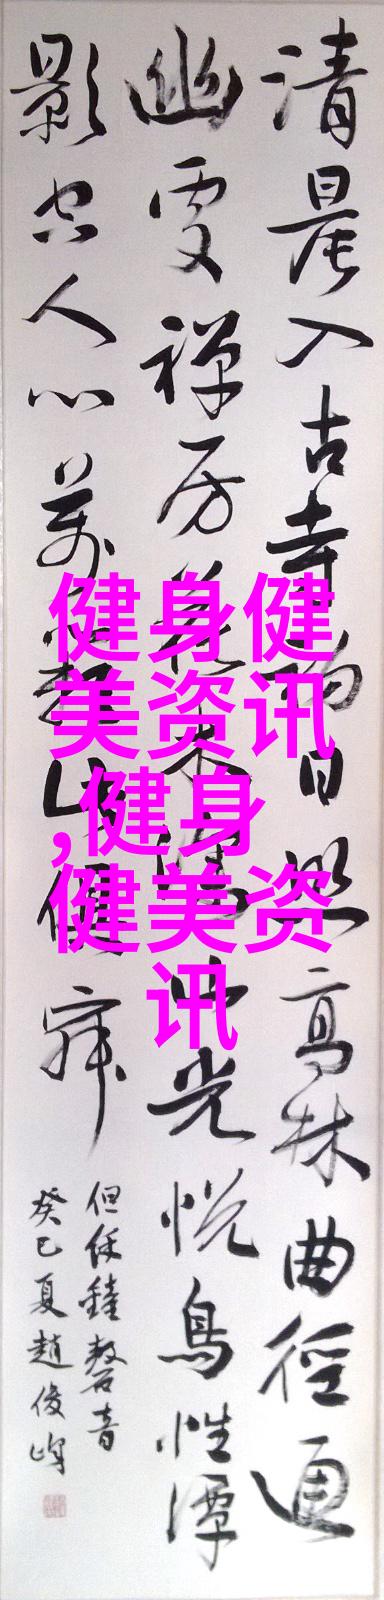 清晨入古寺初日照高林曲徑通
幽處禅房花木深山光悦鳥性潭
影空人心萬籟此俱寂
但餘鐘磬音
癸巳夏趙俊峰
健身健
美资讯
,健身
健美资
讯